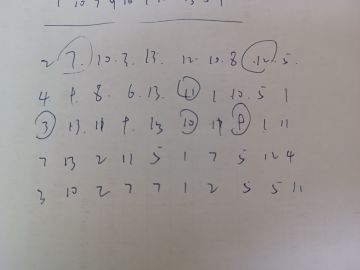 2 7. 10. 3. 13. 12. 10. 8 .12. 5.
4. 9. 8. 6. 13. 11 1 10. 5 1
3 13. 11 9. 13 10 11 9 1 11
7 13 2 11 5 1 7 5 12 4
3 10 2 7 7 1 2 5 5 11